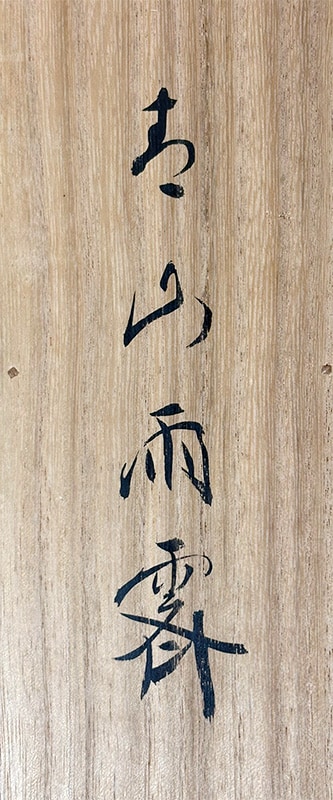 青山雨霽